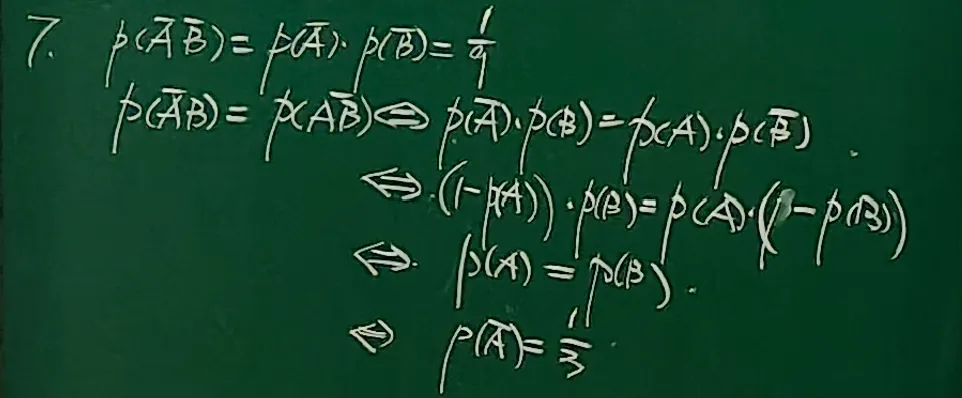 7. p(A̅ B̅) = p(A̅)·p(B̅) = 1/9
p(A̅B) = p(AB̅) ⇔ p(A̅)·p(B) = p(A)·p(B̅)
⇔ (1-p(A))·p(B) = p(A)·(1-p(B))
⇔ p(A) = p(B).
⇔ p(A̅) = 1/3